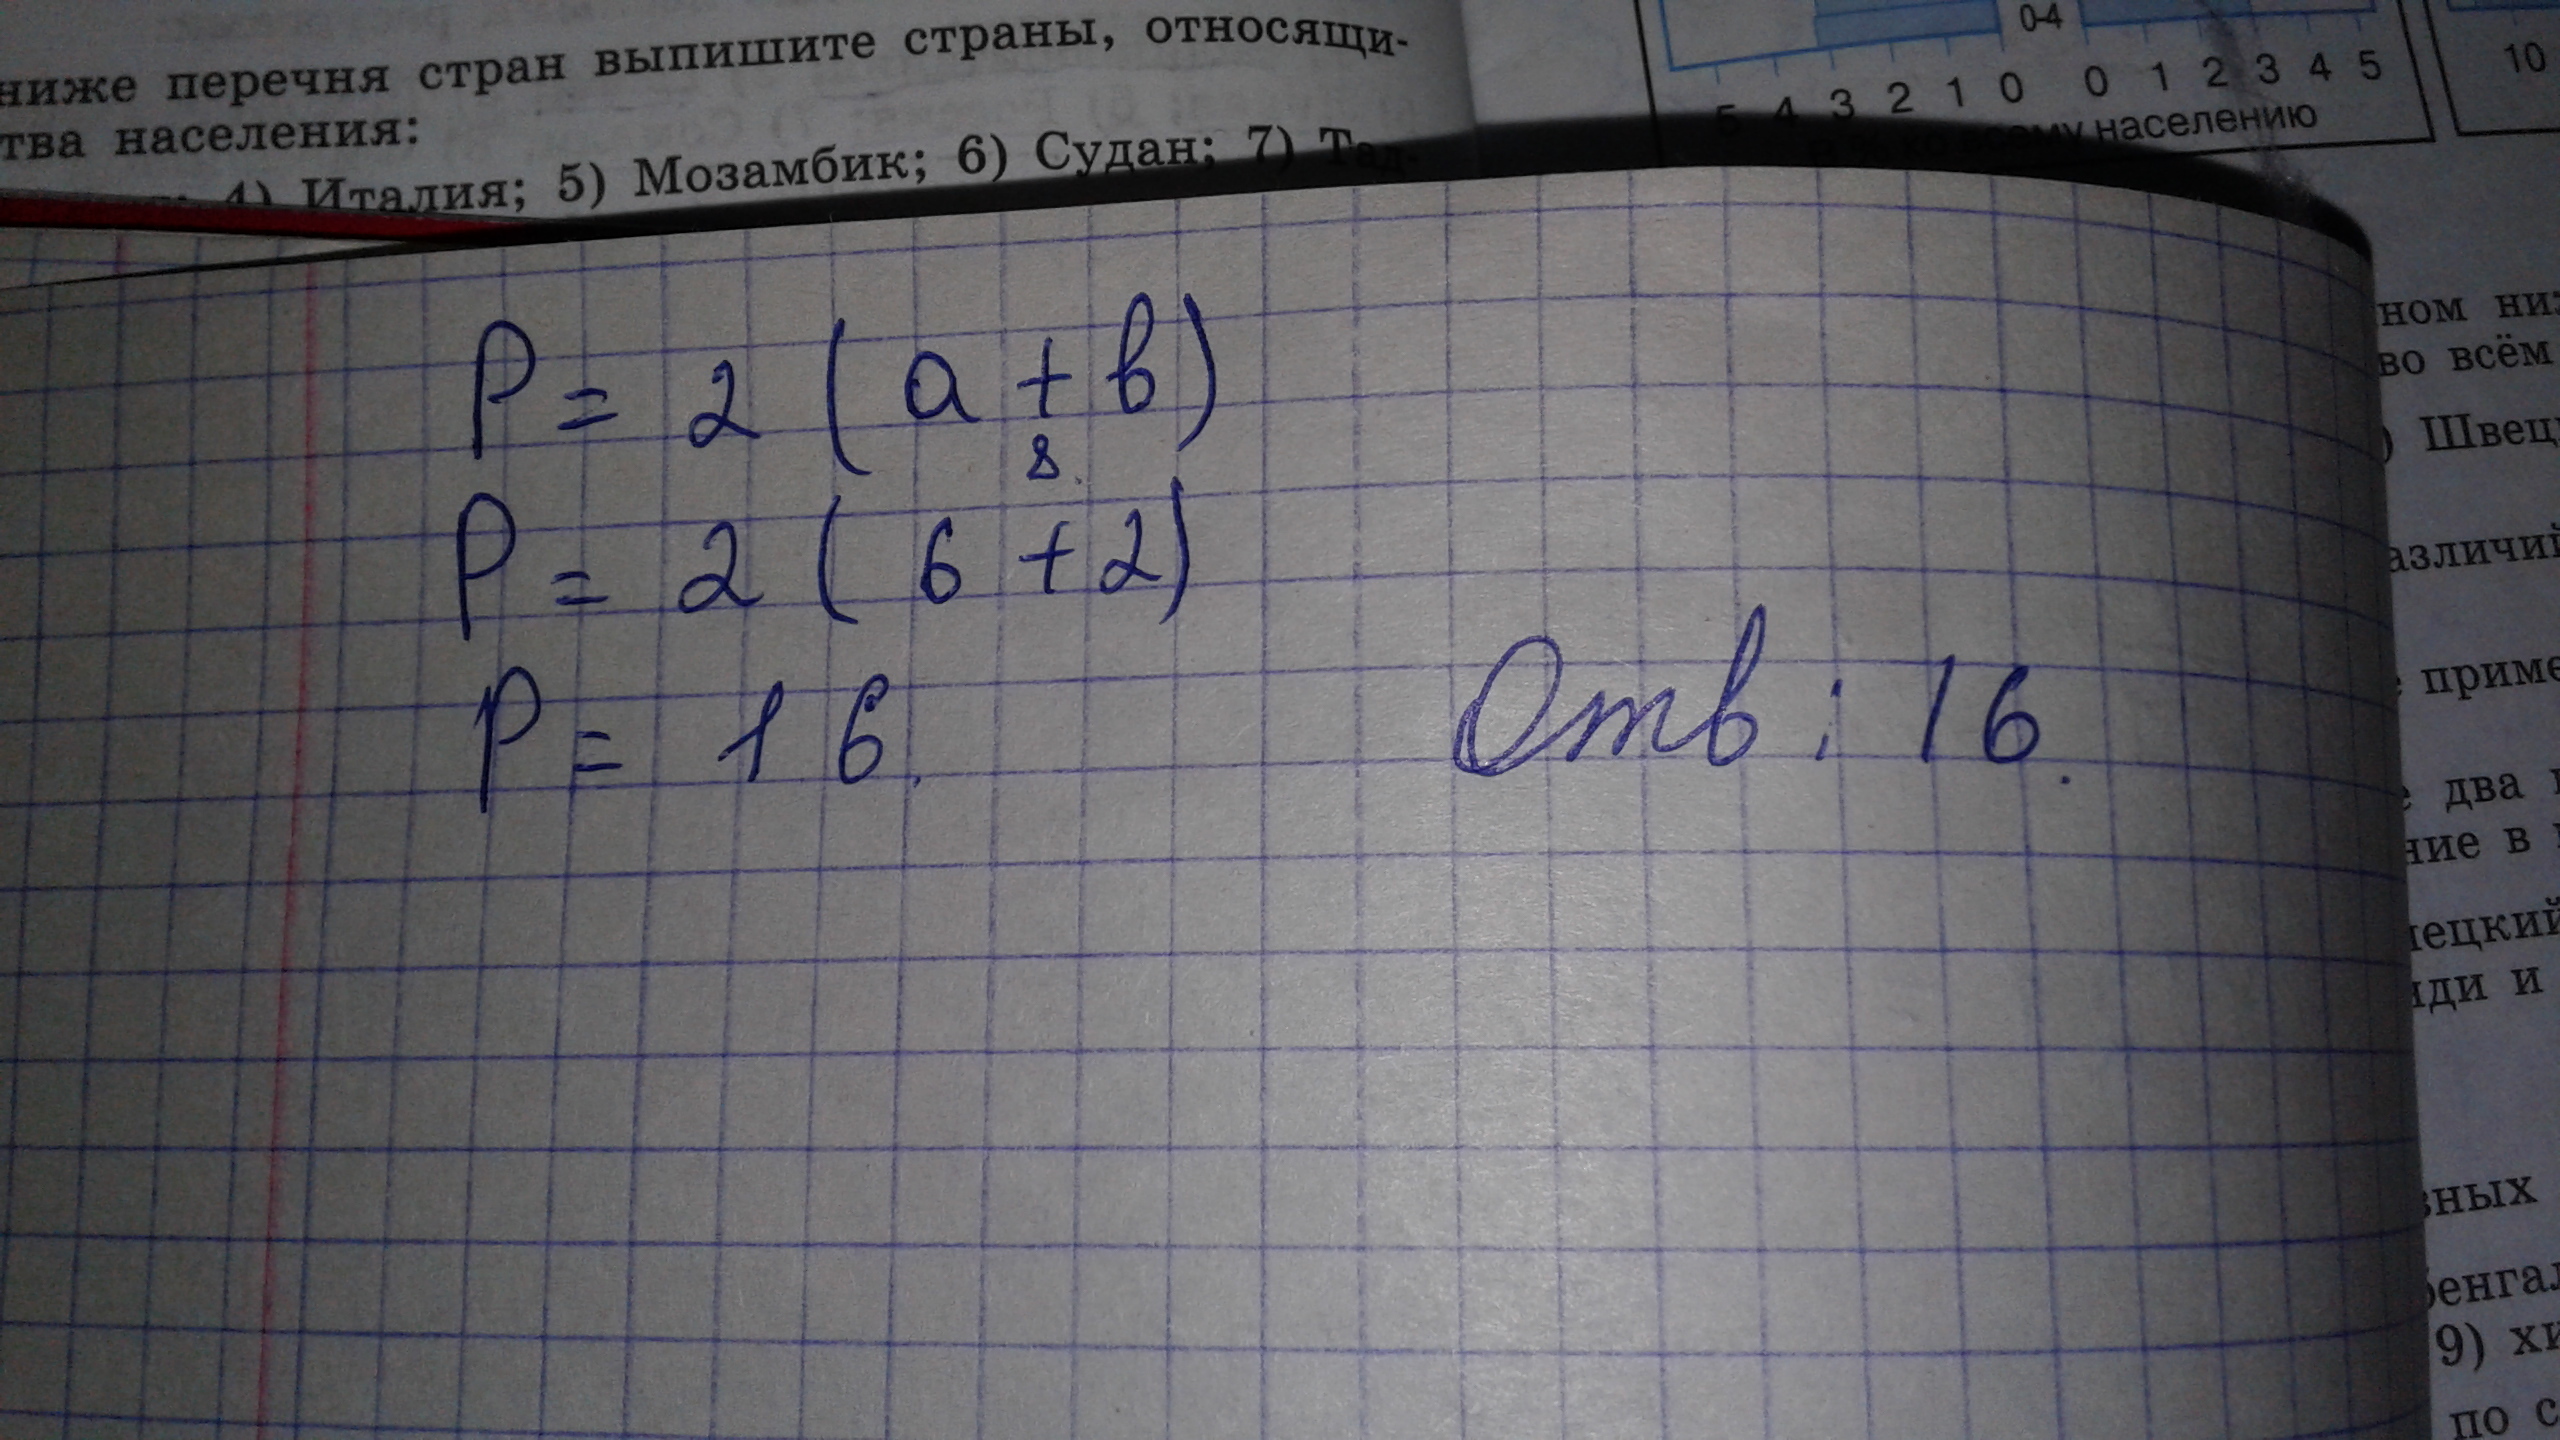 ниже перечня стран выпишите страны, относящи-
тва населения:
4) Италия; 5) Мозамбик; 6) Судан; 7) Тад-
0-4
5 4 3 2 1 0 0 1 2 3 4 5
всему населению
10
P = 2 (a + b)
8
P = 2 (6 + 2)
P = 16.
Отв: 16.
ном ни
во всём
) Швец
азличий
приме
два
ние в
ецкий
ди и
вных
бенгал
9) хи
по с